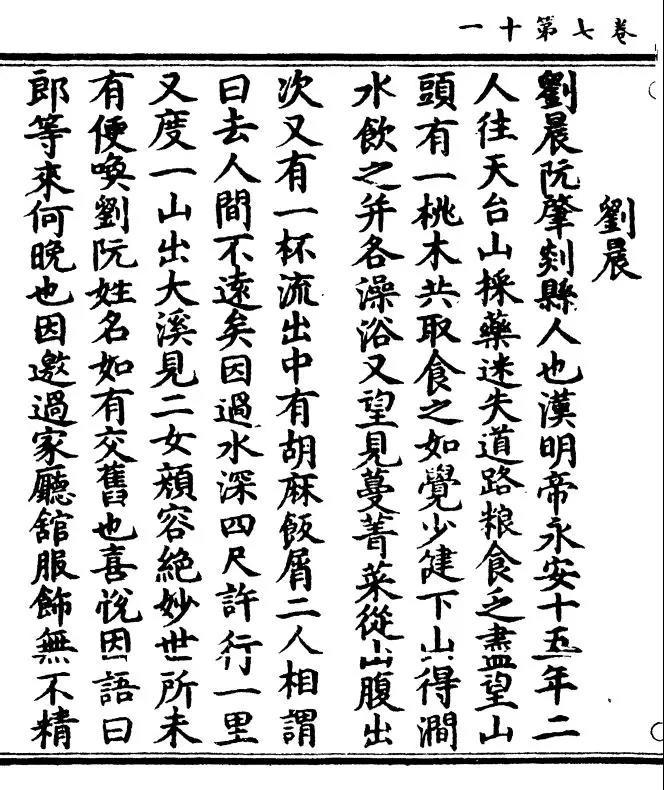 卷七第十一
劉晨
劉晨阮肇剡縣人也漢明帝永安十五年二
人往天台山採藥迷失道路粮食乏盡望山
頭有一桃木共取食之如覺少健下山得澗
水飲之并各澡浴又望見蔓菁菜從山腹出
次又有一杯流出中有胡麻飯屑二人相謂
曰去人間不遠矣因過水深四尺許行一里
又度一山出大溪見二女顔容絶妙世所未
有便喚劉阮姓名如有交舊也喜悅因語曰
郎等來何晚也因邀過家廳舘服飾無不精